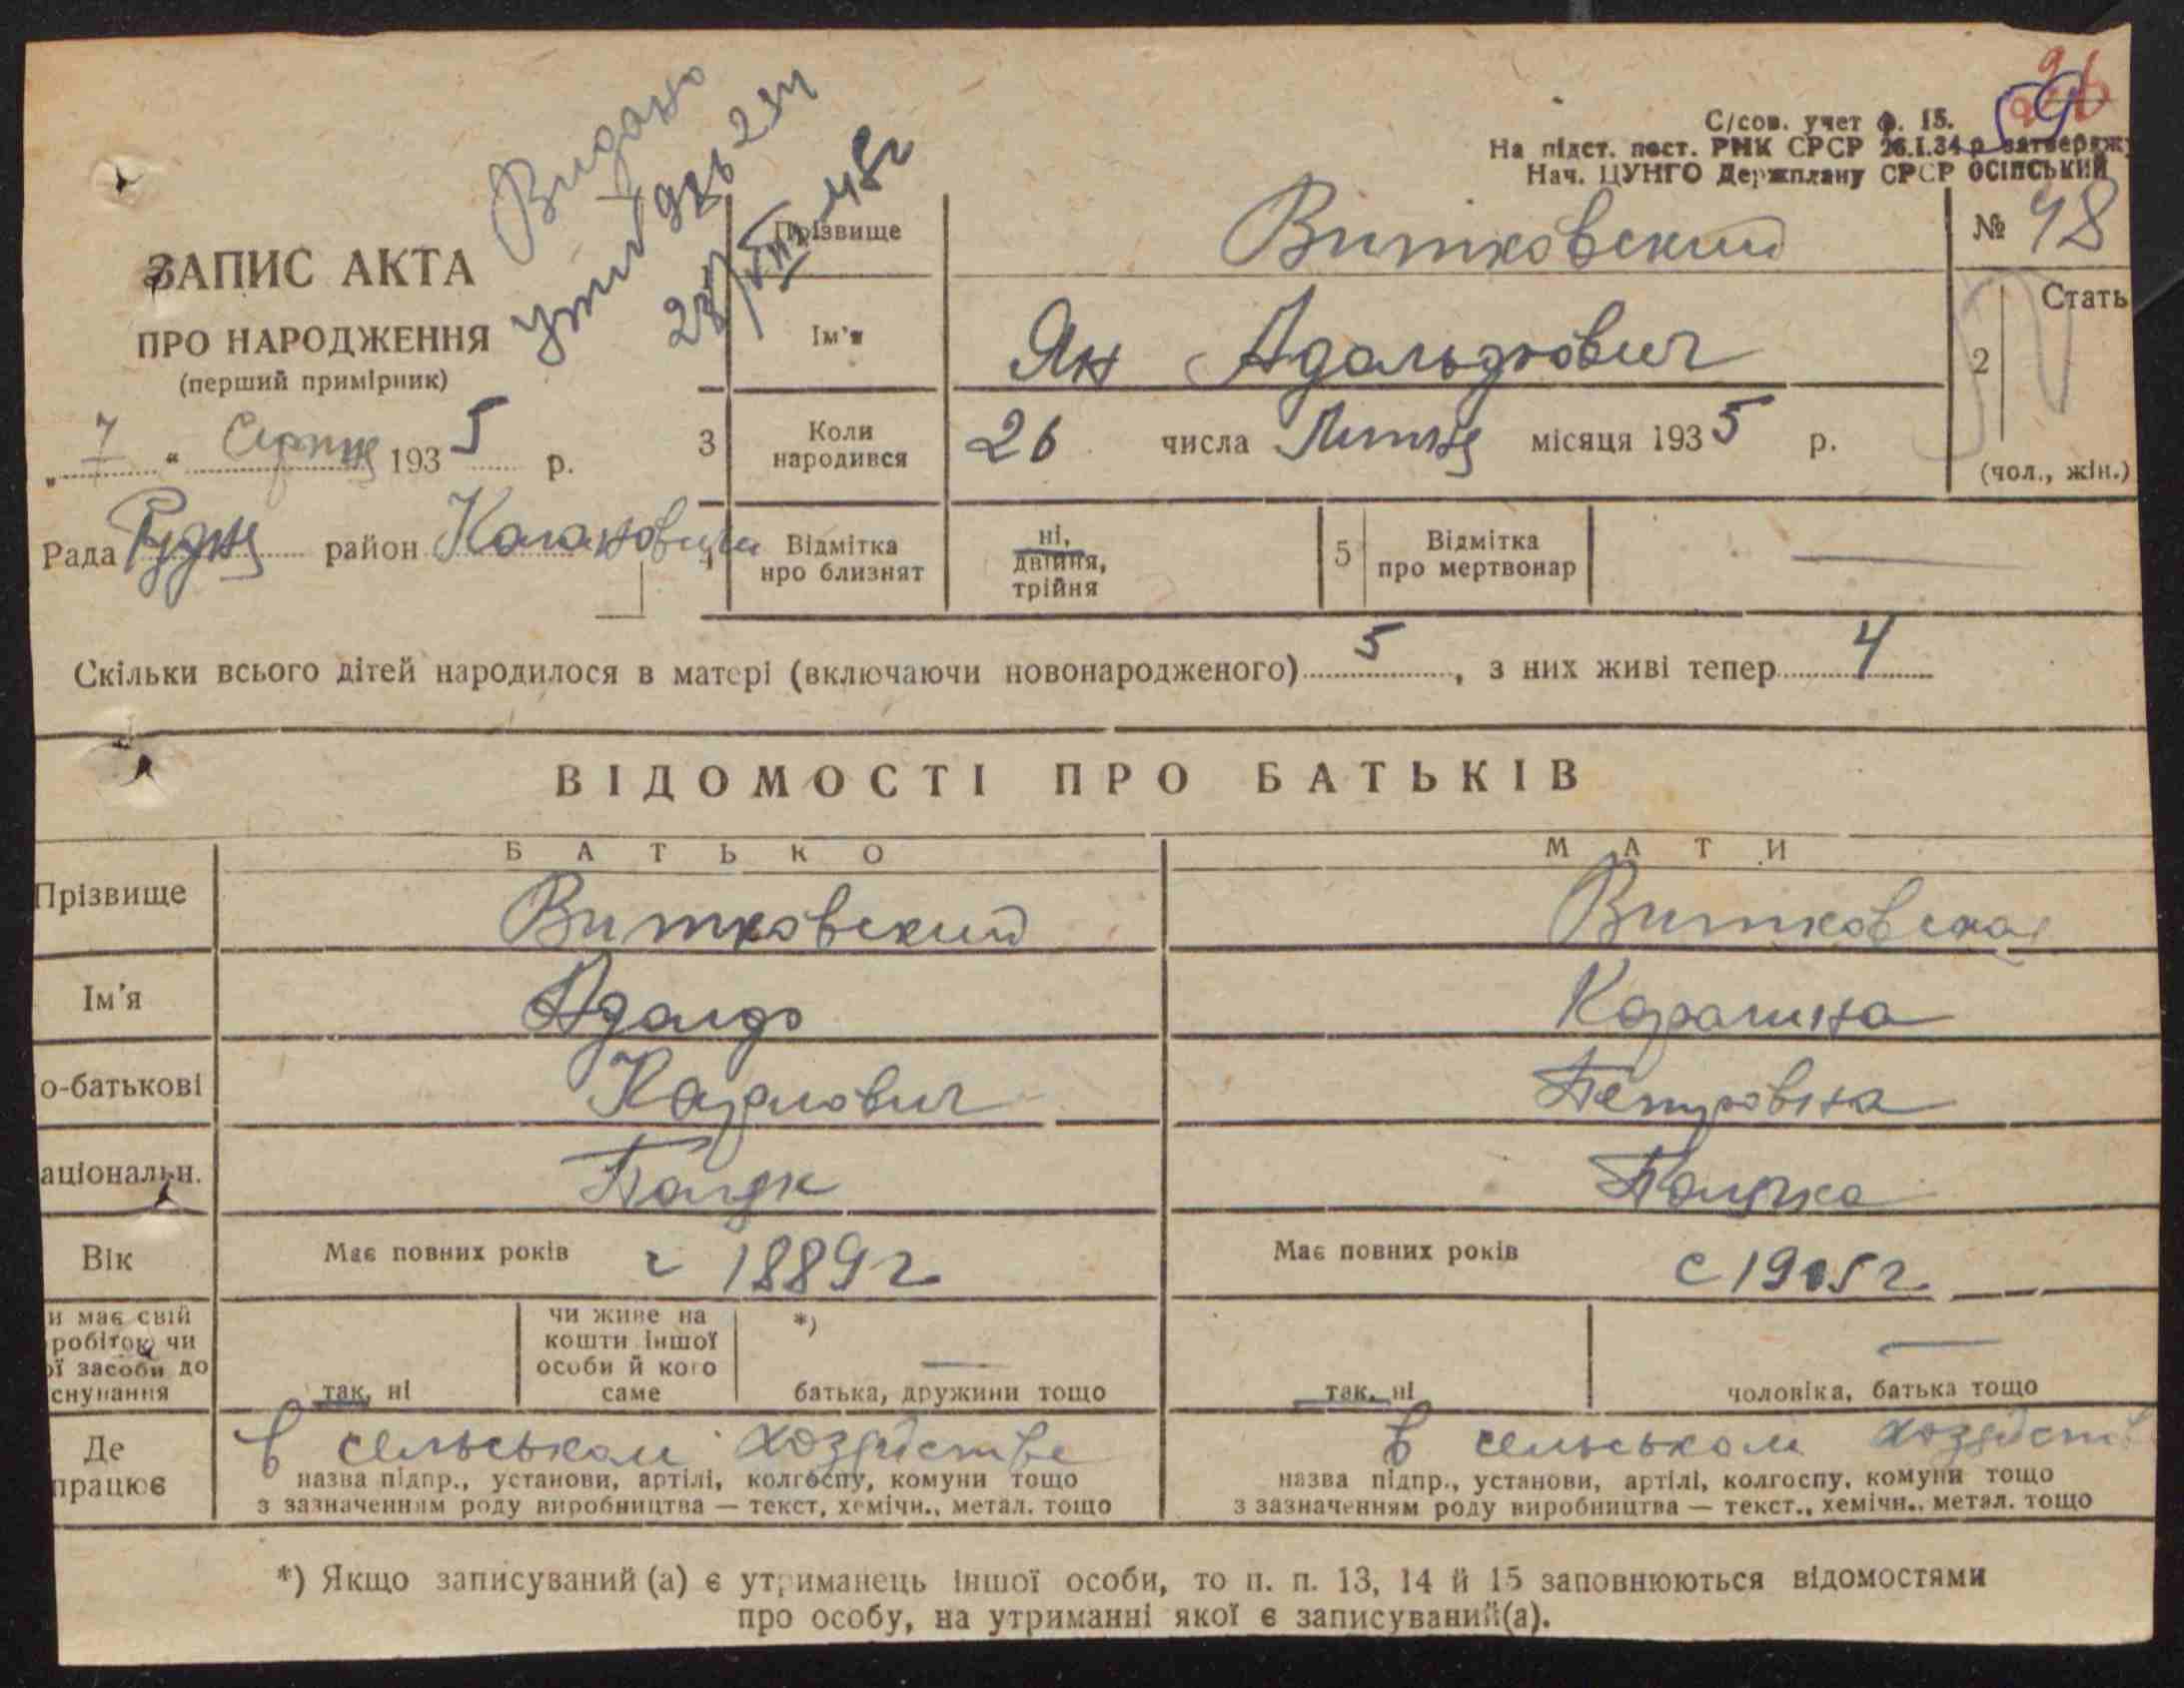 Видано
С/сов. учет ф. 15.
На підст. пост. РНК СРСР 26.I.34 р. затверджу
Нач. ЦУНГО Держплану СРСР ОСІПСЬКИЙ
ЗАПИС АКТА
ПРО НАРОДЖЕННЯ
(перший примірник)
„ 7 “ Серпня 1935 р.
Рада Рудня район Кагановичи
Прізвище Витковский № 48
Ім'я Ян Адольдкович
2 Стать
(чол., жін.)
3 Коли народився 26 числа Липня місяця 1935 р.
4 Відмітка про близнят ні, двійня, трійня
5 Відмітка про мертвонар —
Скільки всього дітей народилося в матері (включаючи новонародженого) 5, з них живі тепер 4
ВІДОМОСТІ ПРО БАТЬКІВ
БАТЬКО МАТИ
Прізвище Витковский Витковская
Ім'я
о-батькові Карлович Петровна
аціональн. Поляк Полячка
Вік Має повних років с 1889 г Має повних років с 1905 г
и має свій
робіток чи
ої засоби до
снування
так, ні
чи живе на
кошти іншої
особи й кого
саме
*)
—
батька, дружини тощо
так, ні
—
чоловіка, батька тощо
Де
працює
в сельськом хозяйстве в сельськом хозяйств
назва підпр., установи, артілі, колгоспу, комуни тощо
з зазначенням роду виробництва — текст, хемічн., метал. тощо
назва підпр., установи, артілі, колгоспу, комуни тощо
з зазначенням роду виробництва — текст., хемічн., метал. тощо
*) Якщо записуваний (а) є утриманець іншої особи, то п. п. 13, 14 й 15 заповнюються відомостями
про особу, на утриманні якої є записуваний(а).